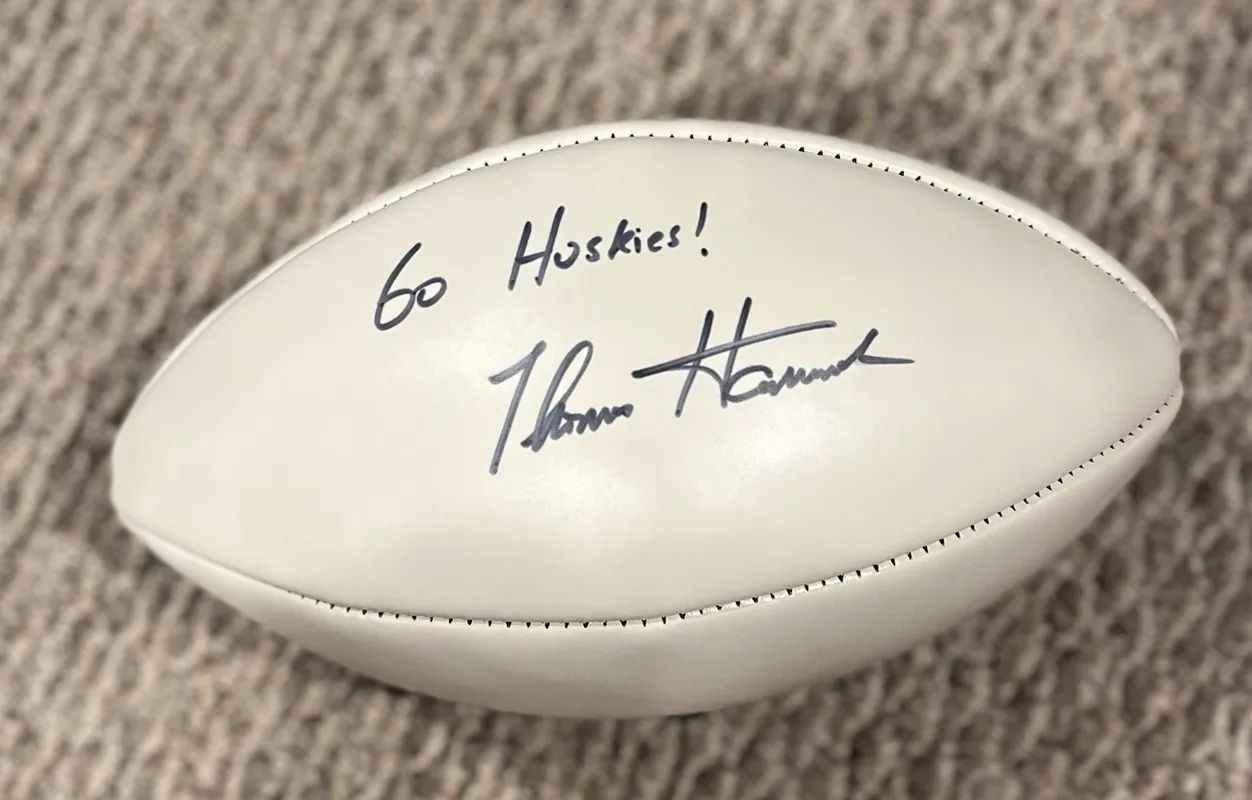 Go Huskies!
Thomas Hammock